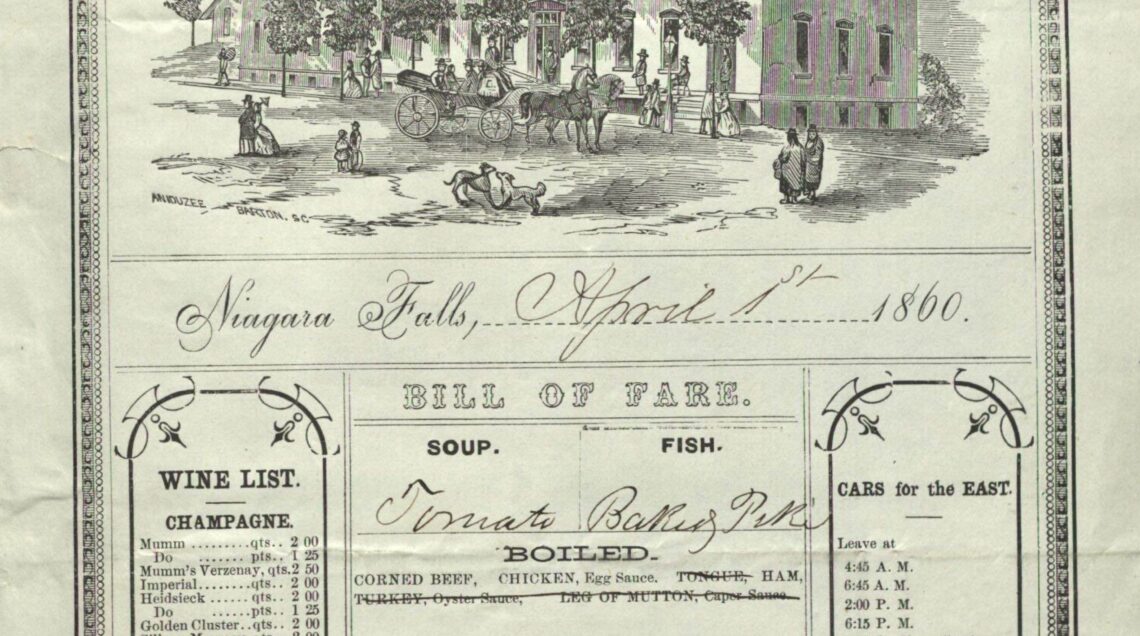 ANIDUZEE BARTON, SC
Niagara Falls, April 1st 1860.
BILL OF FARE.
WINE LIST.
CHAMPAGNE.
Mumm .........qts.. 2 00
Do .......pts.. 1 25
Mumm's Verzenay, qts. 2 50
Imperial........qts.. 2 00
Heidsieck ......qts.. 2 00
Do ......pts.. 1 25
Golden Cluster..qts.. 2 00
SOUP. FISH.
Tomato Baked Pike
BOILED.
CORNED BEEF, CHICKEN, Egg Sauce. TONGUE, HAM,
TURKEY, Oyster Sauce, LEG OF MUTTON, Caper Sauce.
CARS for the EAST.
Leave at
4:45 A. M.
6:45 A. M.
2:00 P. M.
6:15 P. M.